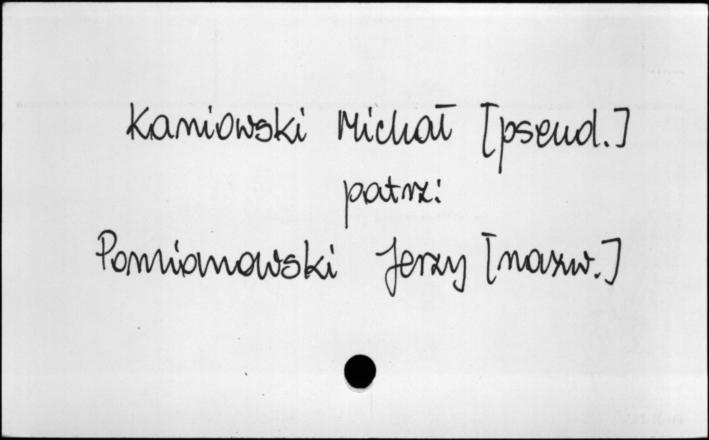 Kaniowski Michał [pseud.]
patrz:
Pomianowski Jerzy [nazw.]